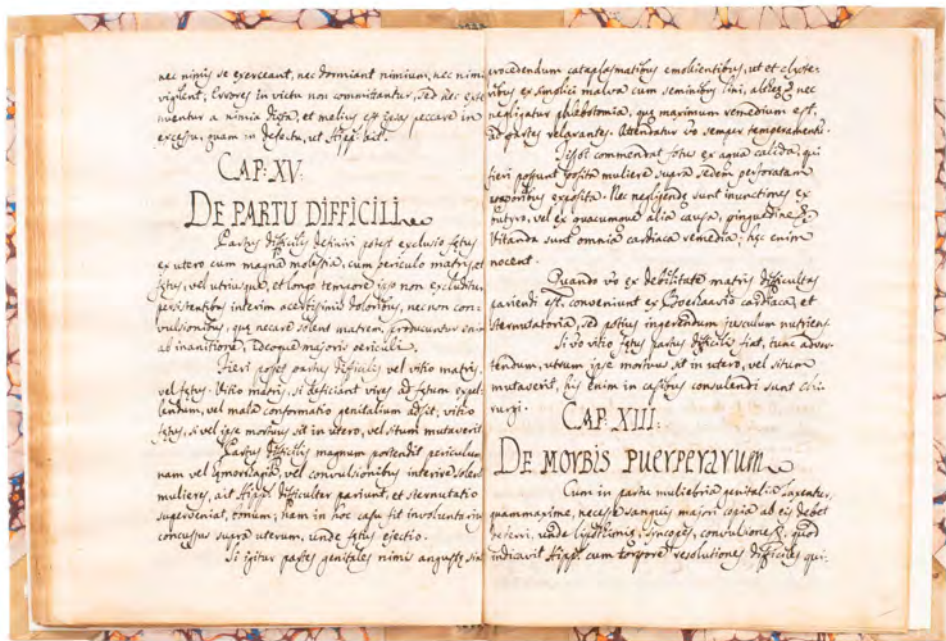 nec nimis se exerceant, nec dormiant nimium, nec nimi
vigilent; Errores in victu non committantur, sed nec exte
nuentur a nimia diæta, et melius est ipsas peccare in
excessu, quam in defectu, ut Hipp: ait.
CAP: XV:
DE PARTU DIFFICILI
Partus difficilis definiri potest exclusio fętus
ex utero cum magna molestia, cum periculo matris, et
fętus, vel utriusque, et longo tempore ipso non excluditur
persistentibus interim acerbissimis doloribus, necnon con:
vulsionibus, quę necare solent matrem, producuntur enim
ab inanitione, ideoque majoris periculi.
Fieri potest partus difficilis vel vitio matris,
vel fętus. Vitio matris, si deficiant vires ad fętum expel:
lendum, vel mala conformatio genitalium adsit; vitio
fętus, si vel ipse mortuus sit in utero, vel situm mutaverit
Partus difficilis magnum portendit periculum
nam vel hęmorragia, vel convulsionibus interire solent
mulieres, ait Hipp: difficulter pariunt, et sternutatio
superveniat, bonum; nam in hoc casu fit involuntarius
concussus supra uterum, unde fętus ejectio.
Si igitur partes genitales nimis angustę sint
procedendum cataplasmatibus emollientibus, ut et clyste:
ribus ex simplici malva cum seminibus lini, nec
negligatur phlębotomia, quę maximum remedium est,
ad partes relaxantes. Attendatur vo semper temperamentũ.
commendat fotus ex aqua calida, qui
fieri possunt posita muliere supra sedem perforatam
vaporibus exposita. Nec negligendę sunt inunctiones ex
butyro, vel ex quacumque alia pinguedine &
Vitanda sunt omnia cardiaca remedia; hęc enim
nocent.
Quando vo ex debilitate matris difficultas
pariendi est, conveniunt ex Boerhaavio cardiaca, et
sternutatoria, sed potius ingerendum jusculum nutriens.
Si vo vitio fętus partus difficilis fiat, tunc adver:
tendum, utrum ipse mortuus sit in utero, vel situm
mutaverit, his enim in casibus consulendi sunt chi:
rurgi.
CAP. XIII:
DE MORBIS PUERPERARUM
Cum in partu muliebria genitalia laxentur,
quammaxime, necesse sanguis majori copia ab eis debet
deferri, unde lipothimię, syncopes, convulsiones &, quod
indicavit Hipp: cum torpore resolutiones difficiles qui: